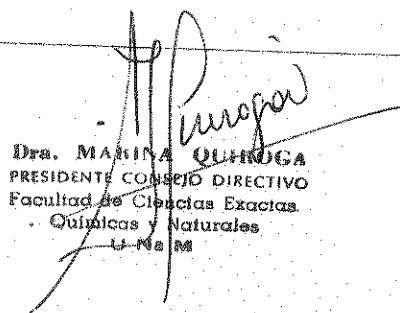 Quiroga
Dra. MARINA QUIROGA
PRESIDENTE CONSEJO DIRECTIVO
Facultad de Ciencias Exactas
Químicas y Naturales
U Na M